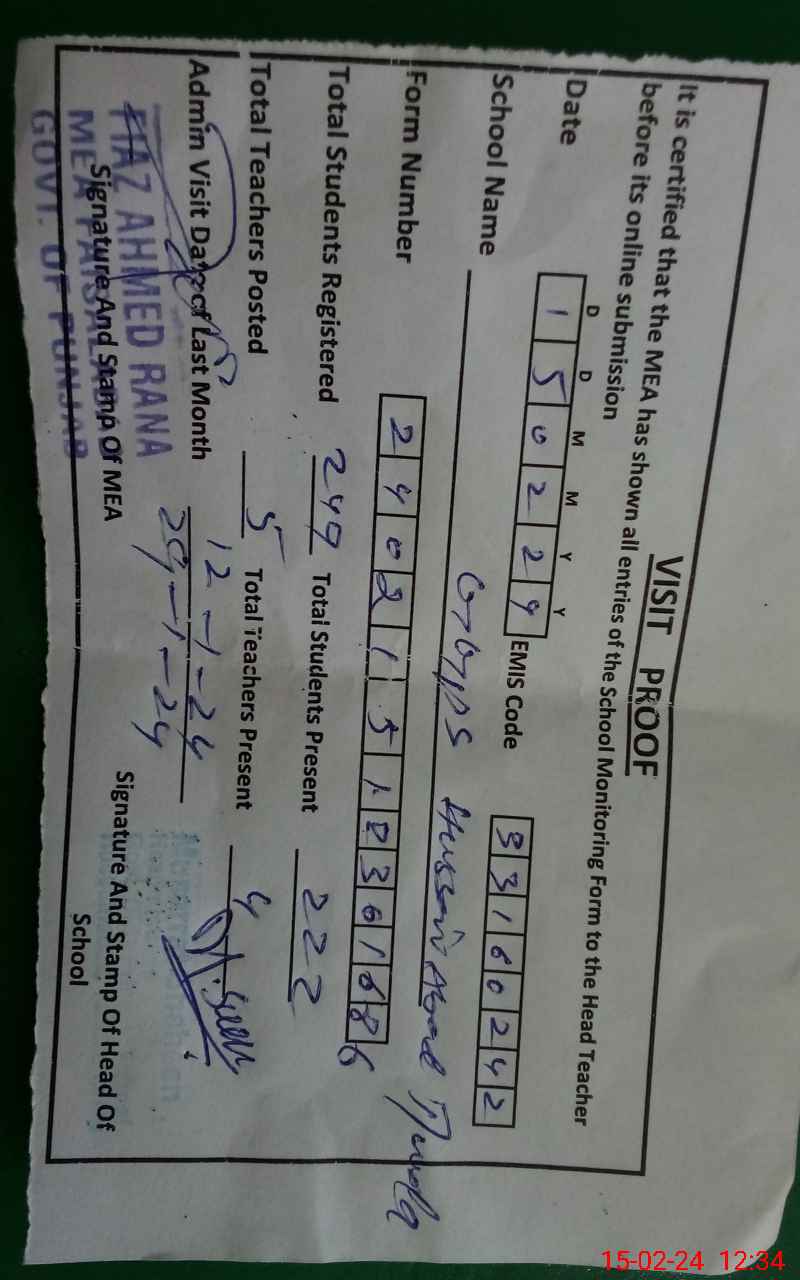 VISIT PROOF
It is certified that the MEA has shown all entries of the School Monitoring Form to the Head Teacher
before its online submission
D D M M Y Y
Date 1 5 0 2 2 4 EMIS Code 3 3 1 6 0 2 4 2
School Name Hussain Abad
Form Number 2 4 0 2 1 5 1 2 3 6 1 6 8 6
Total Students Registered 249 Total Students Present 222
Total Teachers Posted 5 Total Teachers Present 4
Admin Visit Date of Last Month 12-1-24
29-1-24
FIAZ AHMED RANA
MEA FAISALABAD
GOVT. OF PUNJAB
Signature And Stamp Of MEA
Signature And Stamp Of Head Of
School
15-02-24 12:34